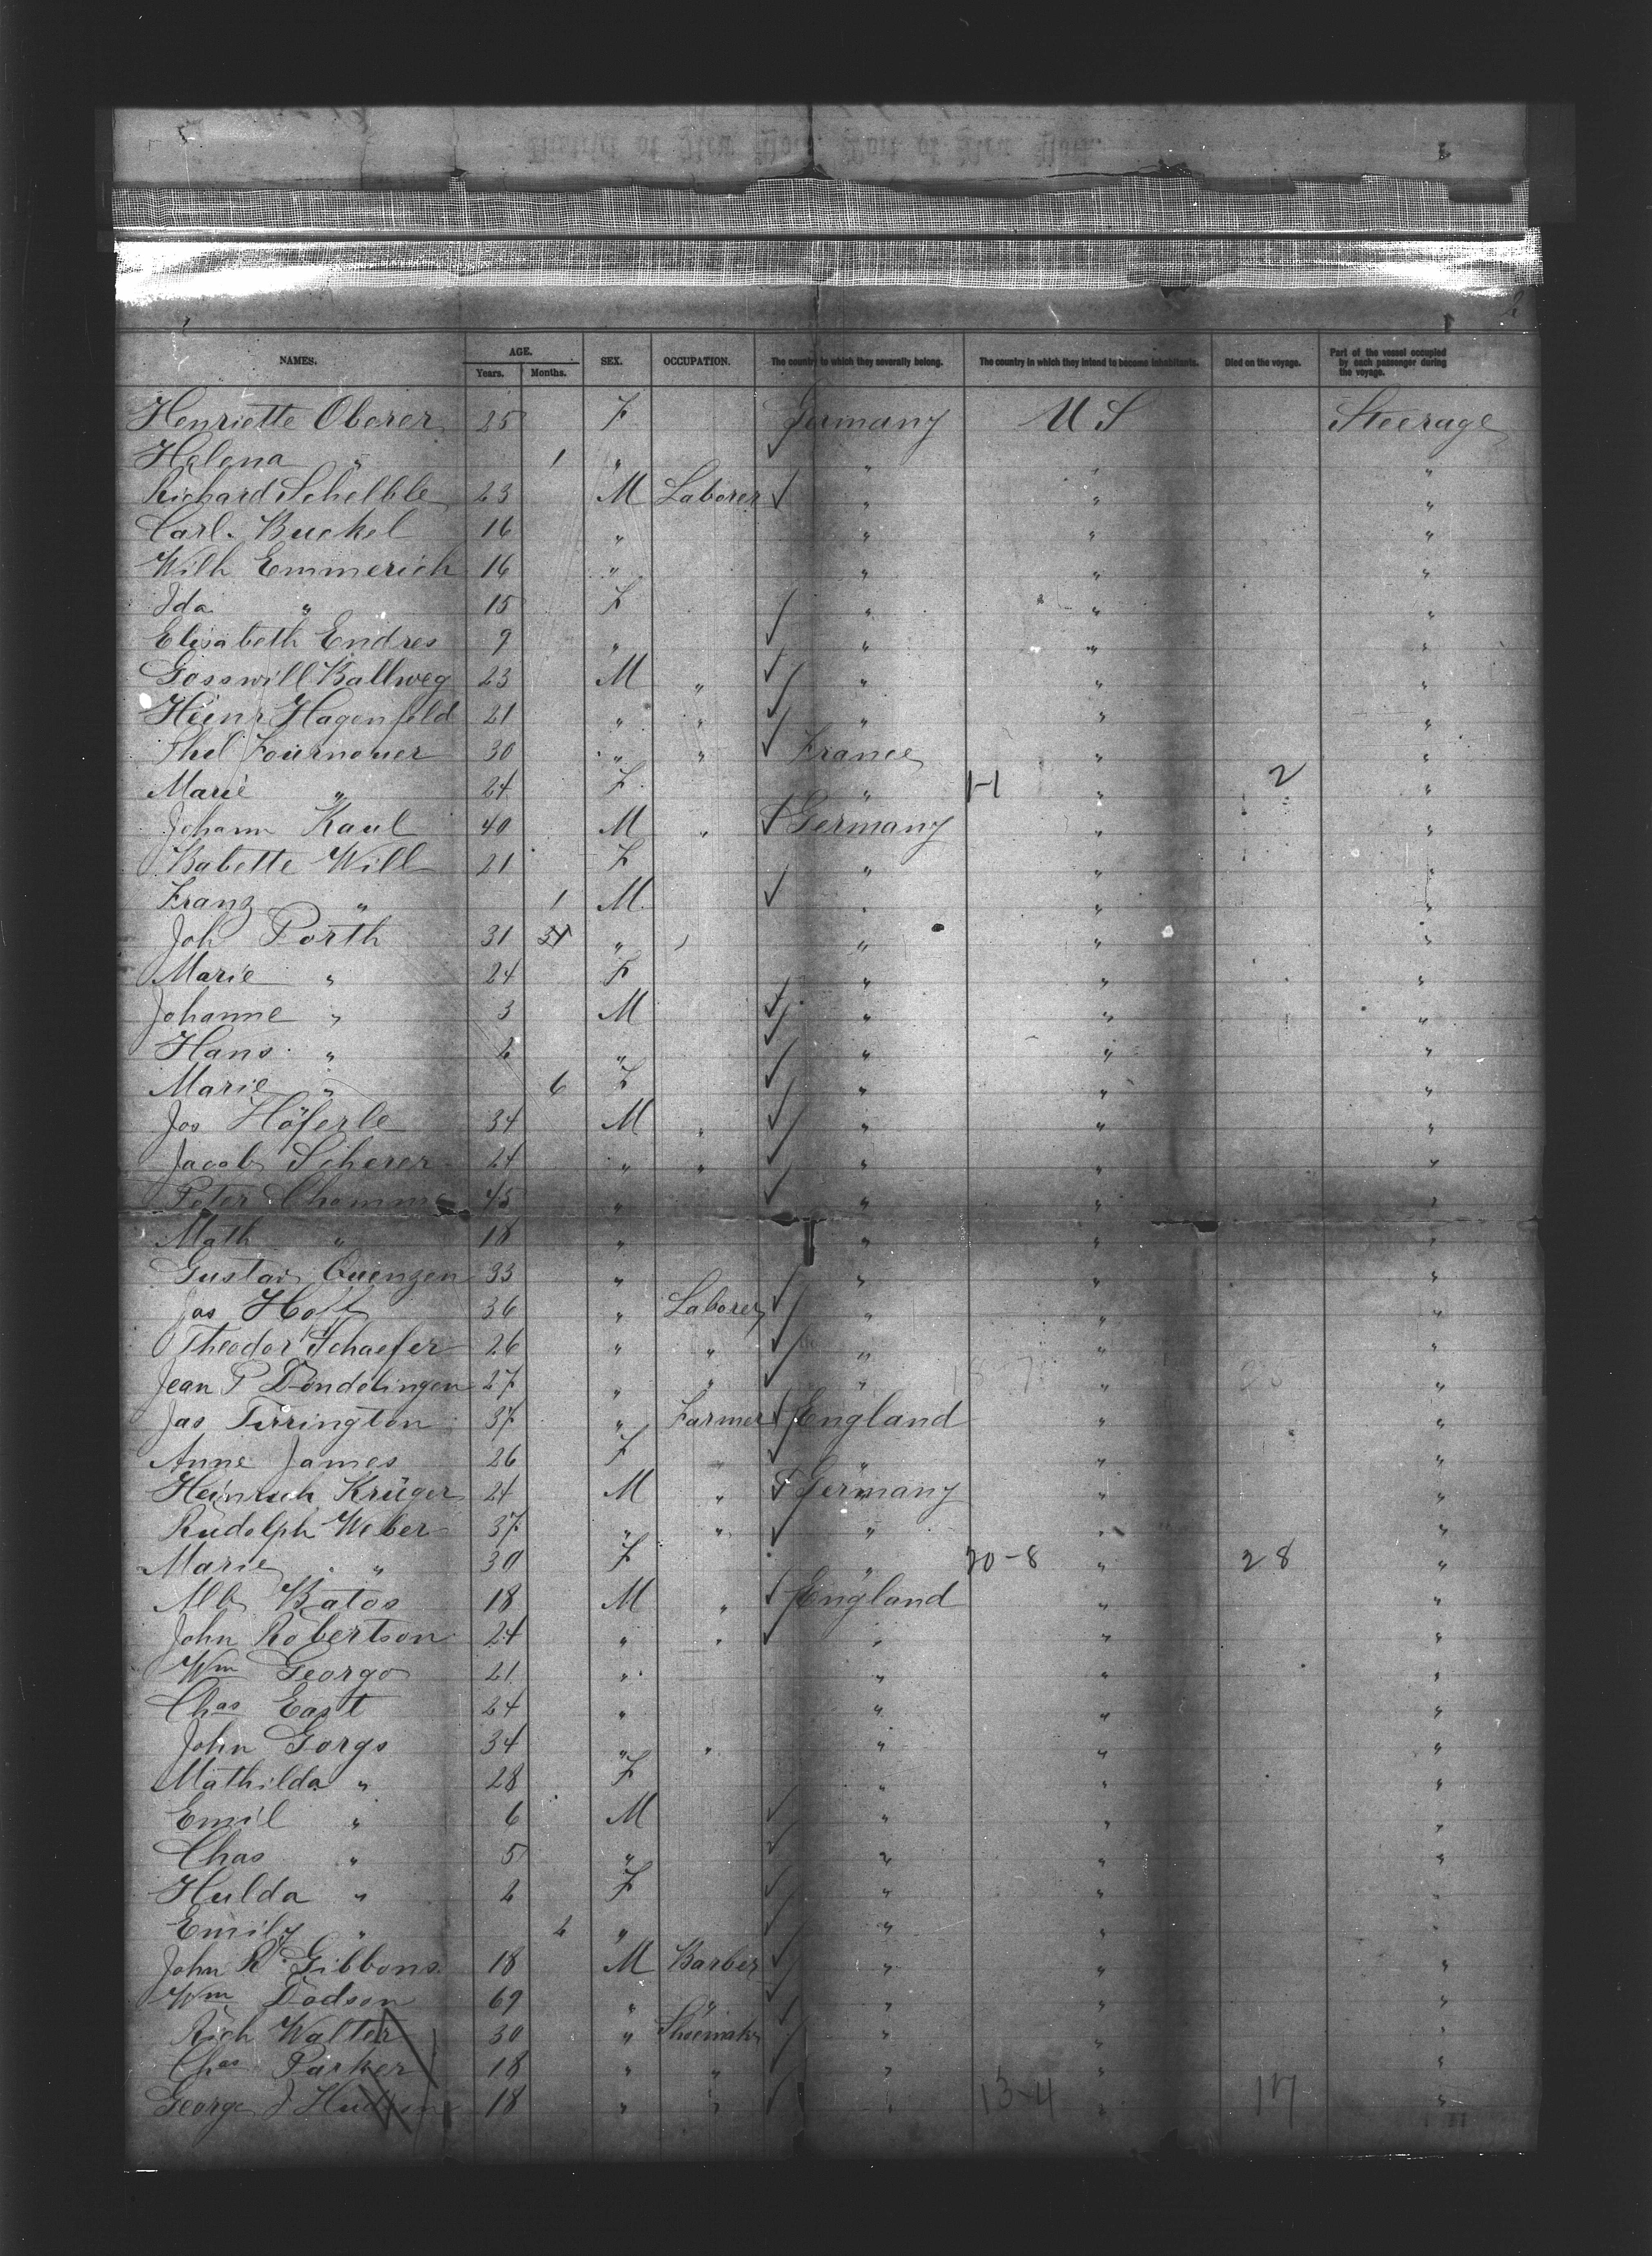 2
NAMES. AGE. Years. Months. SEX. OCCUPATION. The country to which they severally belong. The country in which they intend to become inhabitants. Died on the voyage. Part of the vessel occupied by each passenger during the voyage.
Henriette Oberer 25 F Germany U S Steerage
Helena " 1 " " " "
Richard Schelble 23 M Laborer " " "
Carl Buckel 16 " " " "
Wilh Emmerich 16 " " " "
Ida " 15 F " " "
Elisabeth Endres 9 " " " "
Gosswill Ballweg 23 M " " " "
Heinr Hagenfeld 21 " " " " "
30 " " France " "
Marie " 24 F " 1-1 " 2 "
Johann Kaul 40 M " Germany " "
Babette Will 21 F " " "
Franz " 1 M " " "
Joh Porth 31 " " " "
Marie " 24 F " " "
Johanne " 3 M " " "
Hans " 2 " " " "
Marie " 6 F " " "
Jos Höferle 34 M " " " "
Jacob Scherer 24 " " " " "
Peter 45 " " " "
Math " 18 " " " "
Gustav 33 " " " "
Jos 36 " Laborer " " "
Theodor Schaefer 26 " " " " "
Jean P Dondelingen 27 " " " " "
Jas Tirrington 37 " Farmer England " "
Anne James 26 F " " " "
Heinrich Krüger 24 M " Germany " "
Rudolph Weber 37 " " " " "
Marie " 30 F " 20-8 " 28 "
Alb Bates 18 M " England " "
John Robertson 24 " " " " "
Wm George 21 " " " "
Chas East 24 " " " "
John Gorgs 34 " " " " "
Mathilda " 28 F " " "
Emil " 6 M " " "
Chas " 5 " " " "
Hulda " 2 F " " "
Emily " 2 " " " "
John R Gibbons 18 M Barber " " "
Wm Dodson 69 " " " " "
Rich Walter 30 " Shoemakr " " "
Chas Parker 18 " " " " "
George J 18 " " " 13-4 " 17 "